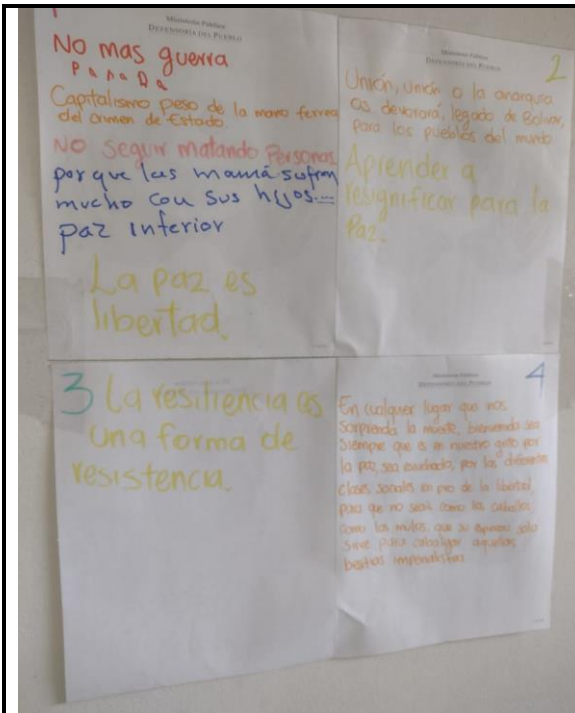 1
Ministerio Público
DEFENSORÍA DEL PUEBLO
No mas guerra
Capitalismo peso de la mano ferrea
del crimen de Estado.
No seguir matando Personas
porque las mamá sufren
mucho con sus hijos....
paz interior
La paz es
libertad.
2
Ministerio Público
DEFENSORÍA DEL PUEBLO
Unión, unión o la anarquia
os devorará, legado de Bolivar,
para los pueblos del mundo
Aprender a
resignificar para la
Paz.
3 La resiliencia es
una forma de
resistencia.
4
Ministerio Público
DEFENSORÍA DEL PUEBLO
En cualquier lugar que nos
sorprenda la muerte, bienvenida sea
siempre que es en nuestro grito por
la paz, sea escuchado, por las diferentes
clases sociales en pro de la libertad,
para que no sean como los caballos,
como las mulas, que su espinazo solo
sirve para cabalgar aquellas
bestias imperialistas